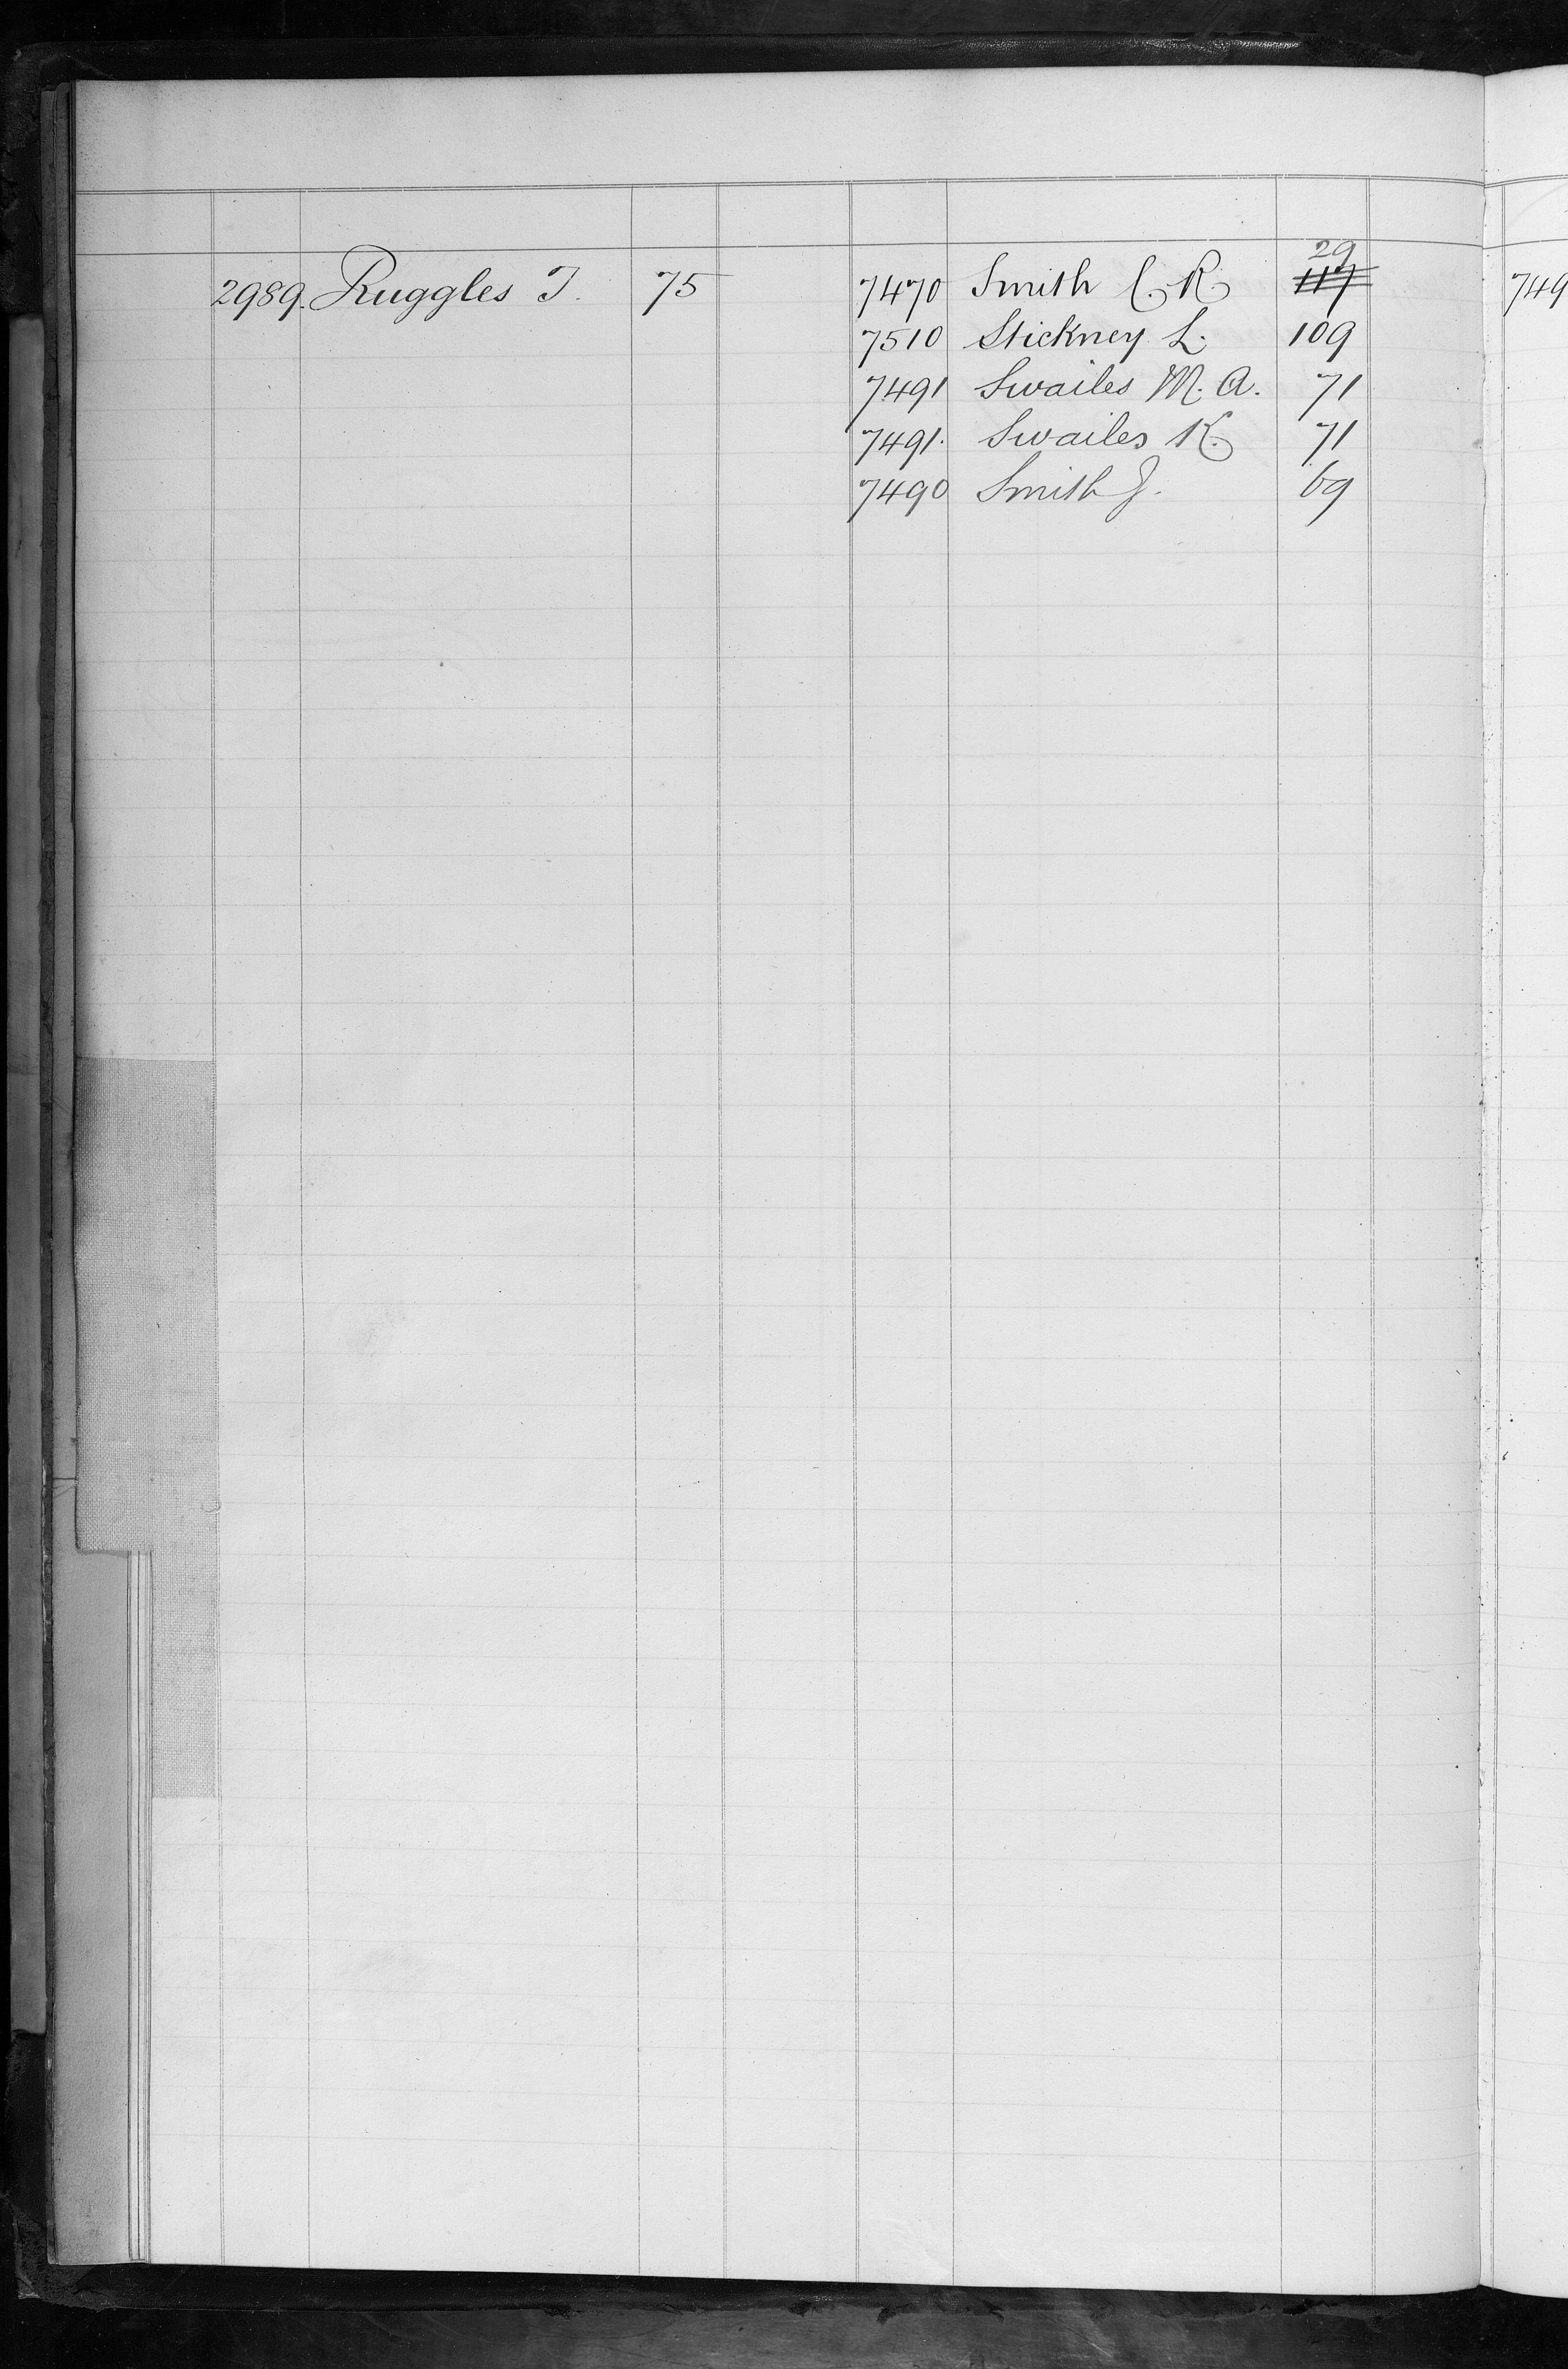 2989. Ruggles T. 75
29
7470 Smith C. R. 117
7510 Stickney L. 109
7491 Swailes M. A. 71
7491. Swailes K. 71
7490 Smith J. 69
749